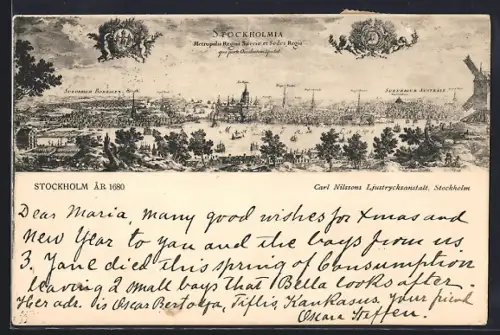 STOCKHOLMIA
Metropolis Regni Sueciæ et Sedes Regia
SUBURBIUM BOREALE
SUBURBIUM AUSTRALE
STOCKHOLM ÅR 1680
Carl Nilssons Ljustrycksanstalt, Stockholm
Dear Maria, many good wishes for Xmas and
New Year to you and the boys from us
3. Jane died this spring of Consumption
leaving 2 small boys that Bella looks after.
Her adr. is Oscar Bertolja, Tiflis, Kaukasus, Your friend
Oscar Steffen.